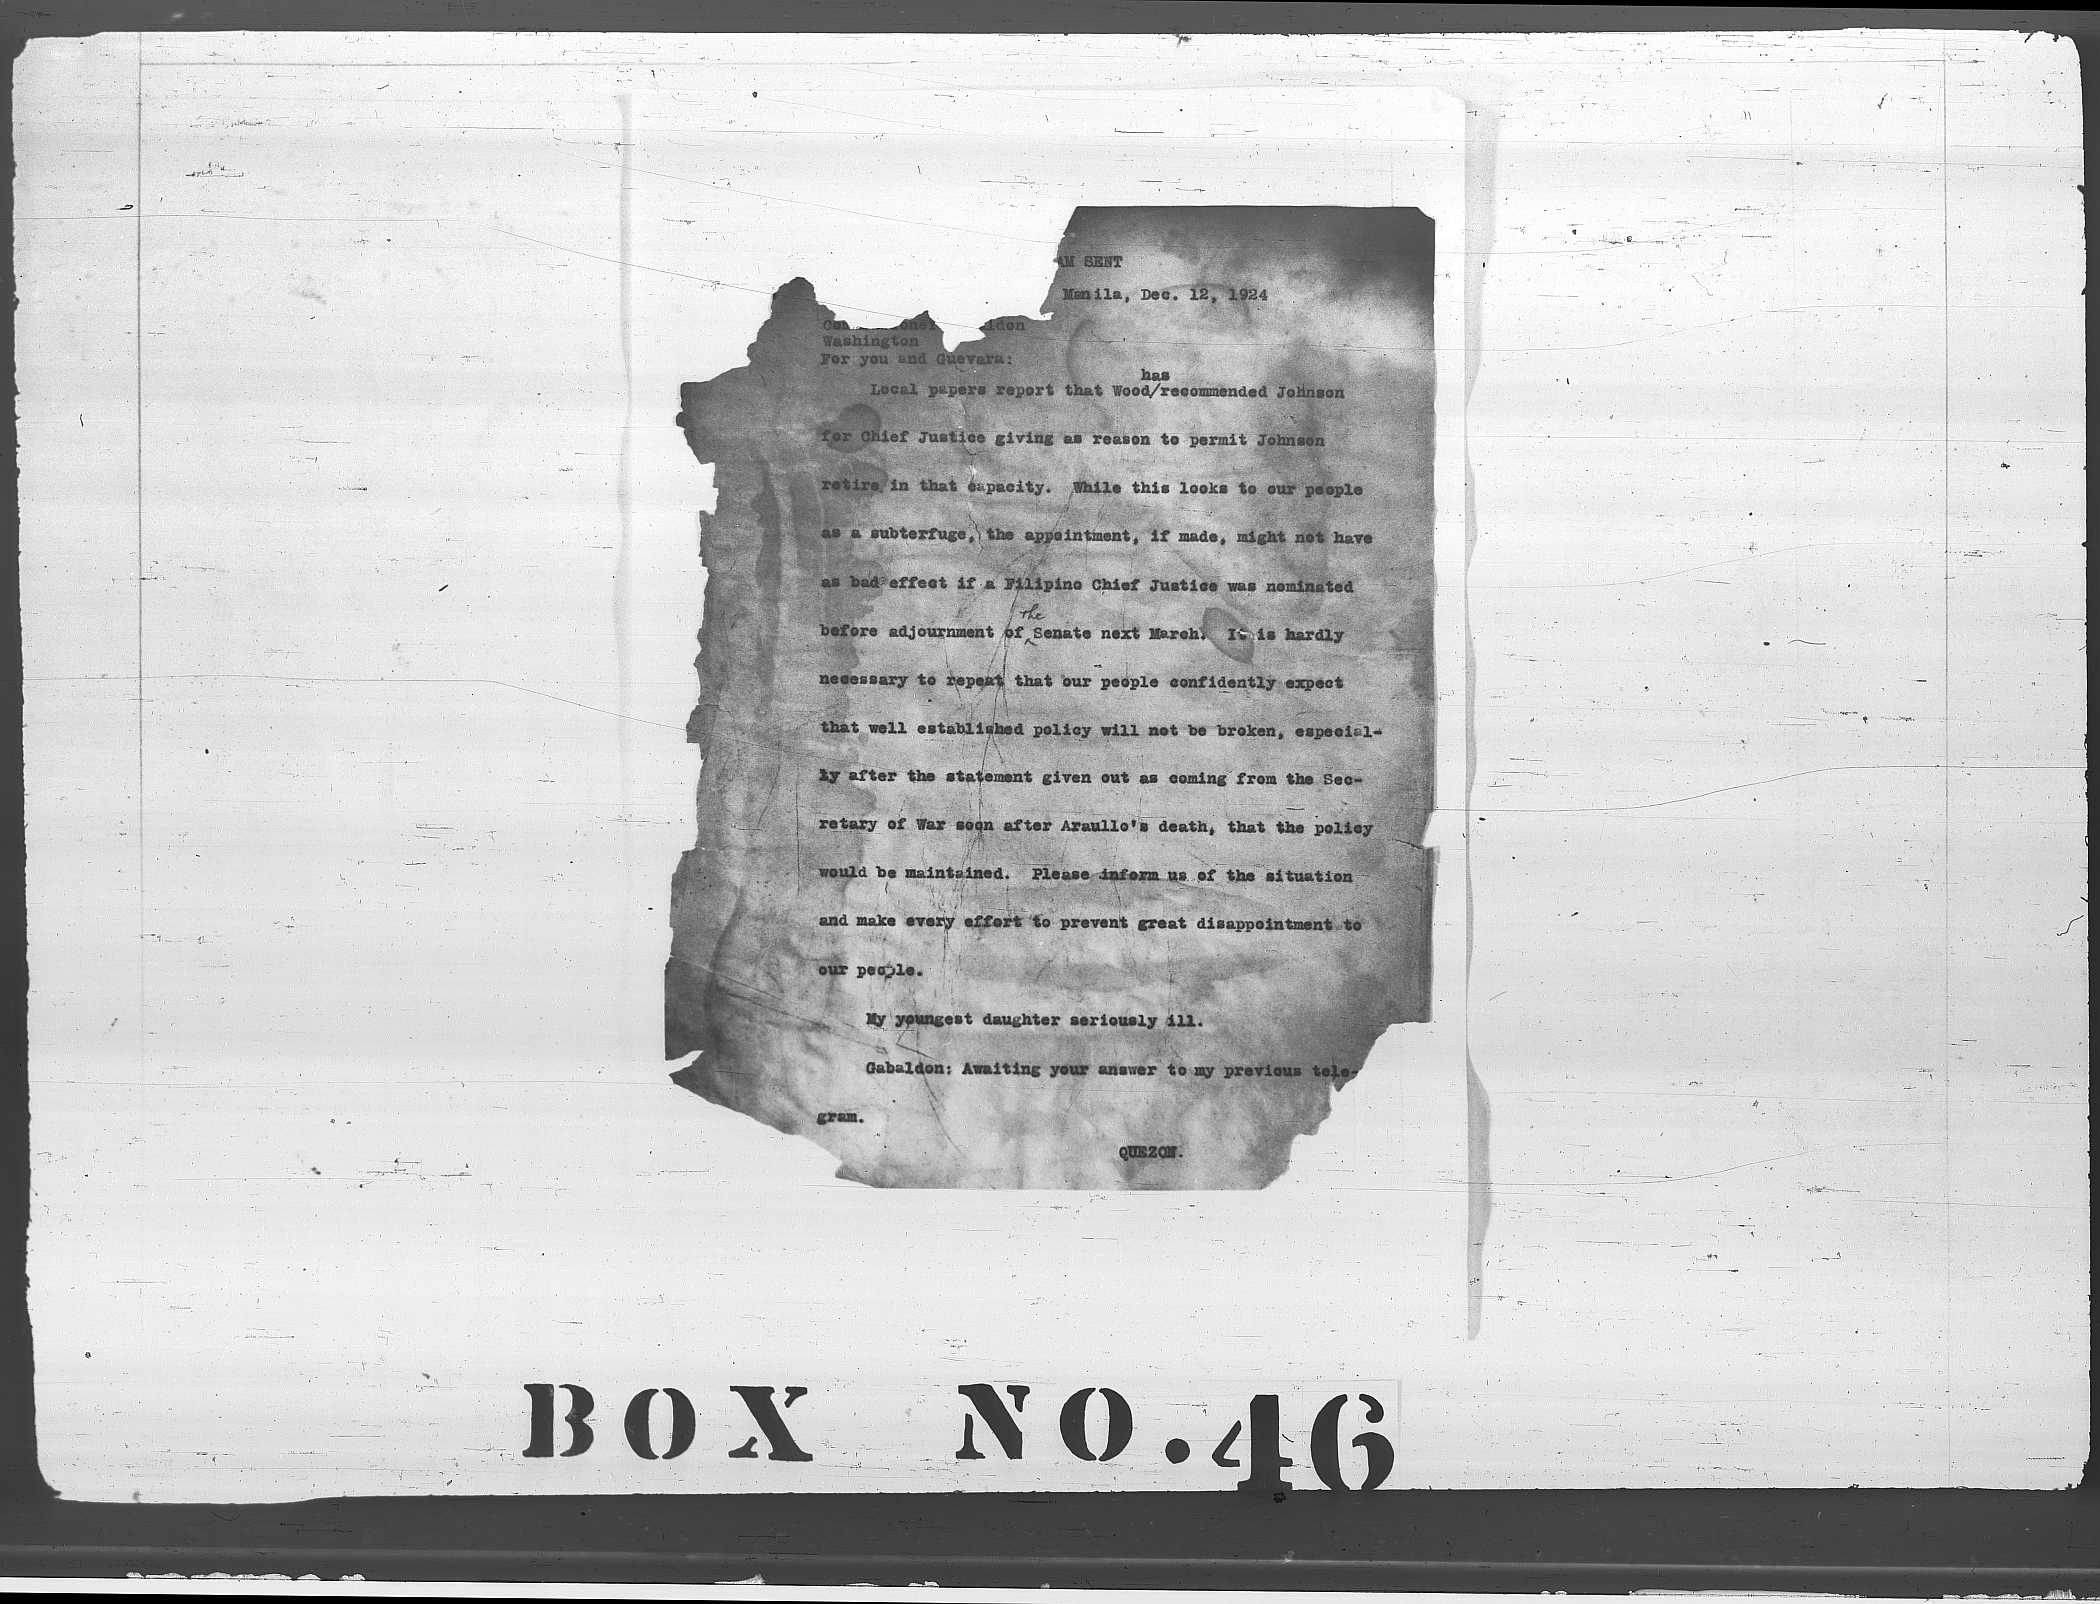 AM SENT
Manila, Dec. 12, 1924
Washington
For you and Guevara:
has
Local papers report that Wood/recommended Johnson
for Chief Justice giving as reason to permit Johnson
retire in that capacity. While this looks to our people
as a subterfuge, the appointment, if made, might not have
as bad effect if a Filipino Chief Justice was nominated
the
before adjournment of ^ Senate next March. It is hardly
necessary to repeat that our people confidently expect
that well established policy will not be broken, especial-
ly after the statement given out as coming from the Sec-
retary of War soon after Araullo's death, that the policy
would be maintained. Please inform us of the situation
and make every effort to prevent great disappointment to
our people.
My youngest daughter seriously ill.
Gabaldon: Awaiting your answer to my previous tele-
gram.
QUEZON.
BOX NO. 46